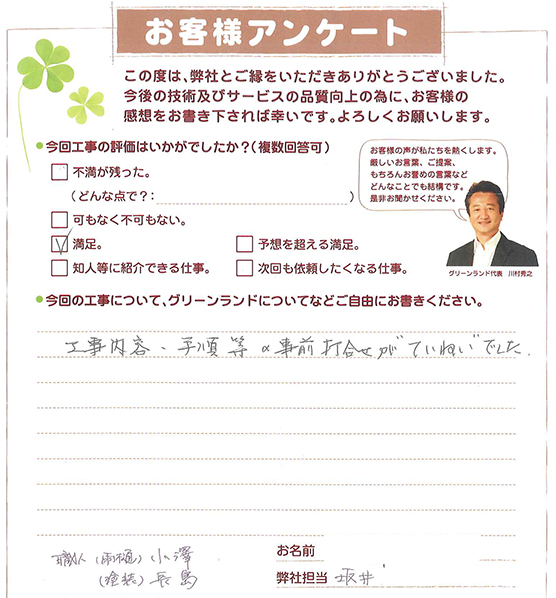 お客様アンケート
この度は、弊社とご縁をいただきありがとうございました。
今後の技術及びサービスの品質向上の為に、お客様の
感想をお書き下されば幸いです。よろしくお願いします。
●今回工事の評価はいかがでしたか？（複数回答可）
不満が残った。
（どんな点で？：　　　）
可もなく不可もない。
満足。
予想を超える満足。
知人等に紹介できる仕事。
次回も依頼したくなる仕事。
お客様の声が私たちを熱くします。
厳しいお言葉、ご提案、
もちろんお誉めの言葉など
どんなことでも結構です。
是非お聞かせください。
グリーンランド代表　川村秀之
●今回の工事について、グリーンランドについてなどご自由にお書きください。
工事内容、手順等の事前打合せがていねいでした.
職人 (雨樋) 小澤
(塗装) 長島
お名前
弊社担当 坂井